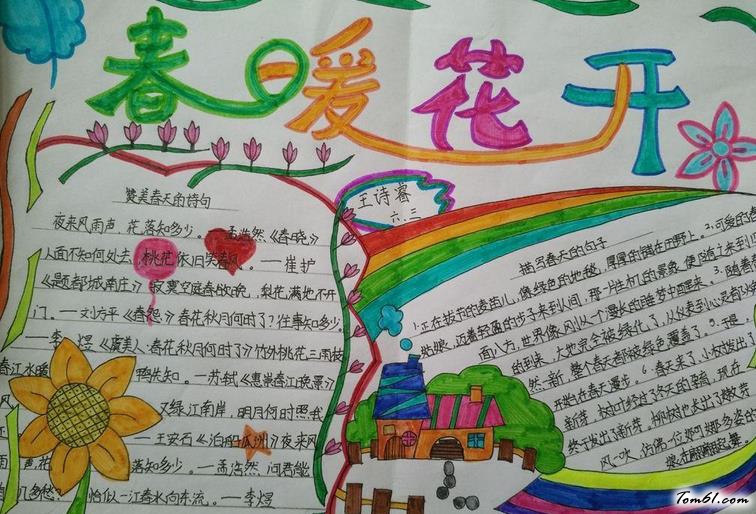 春暖花开
王诗睿
六.三
赞美春天的诗句
夜来风雨声,花落知多少。——孟浩然《春晓》
人面不知何处去,桃花依旧笑春风。——崔护
《题都城南庄》寂寞空庭春欲晚,梨花满地不开
门。——刘方平《春怨》春花秋月何时了?往事知多少。
——李煜《虞美人·春花秋月何时了》竹外桃花三两枝
春江水暖鸭先知。——苏轼《惠崇春江晚景》
风又绿江南岸,明月何时照我
——王安石《泊船瓜洲》夜来风
雨声,花落知多少。——孟浩然 问君能
几多愁?恰似一江春水向东流。——李煜
描写春天的句子
1.正在拔节的麦苗儿,像绿色的地毯,厚厚的铺在田野上。2.可爱的
姑娘,迈着轻盈的步子来到人间,那一片生机的景象便随着来到
面八方,世界像从一个漫长的睡梦中苏醒。3.随着春
的到来,大地完全被绿化了,从
然,新,整个春天都被绿色覆盖了。
开始在春天漫步。6.春天来了,小树发出了
新芽,
终于发出了新芽,桃树也
风一吹,仿佛一位
Tom61.com